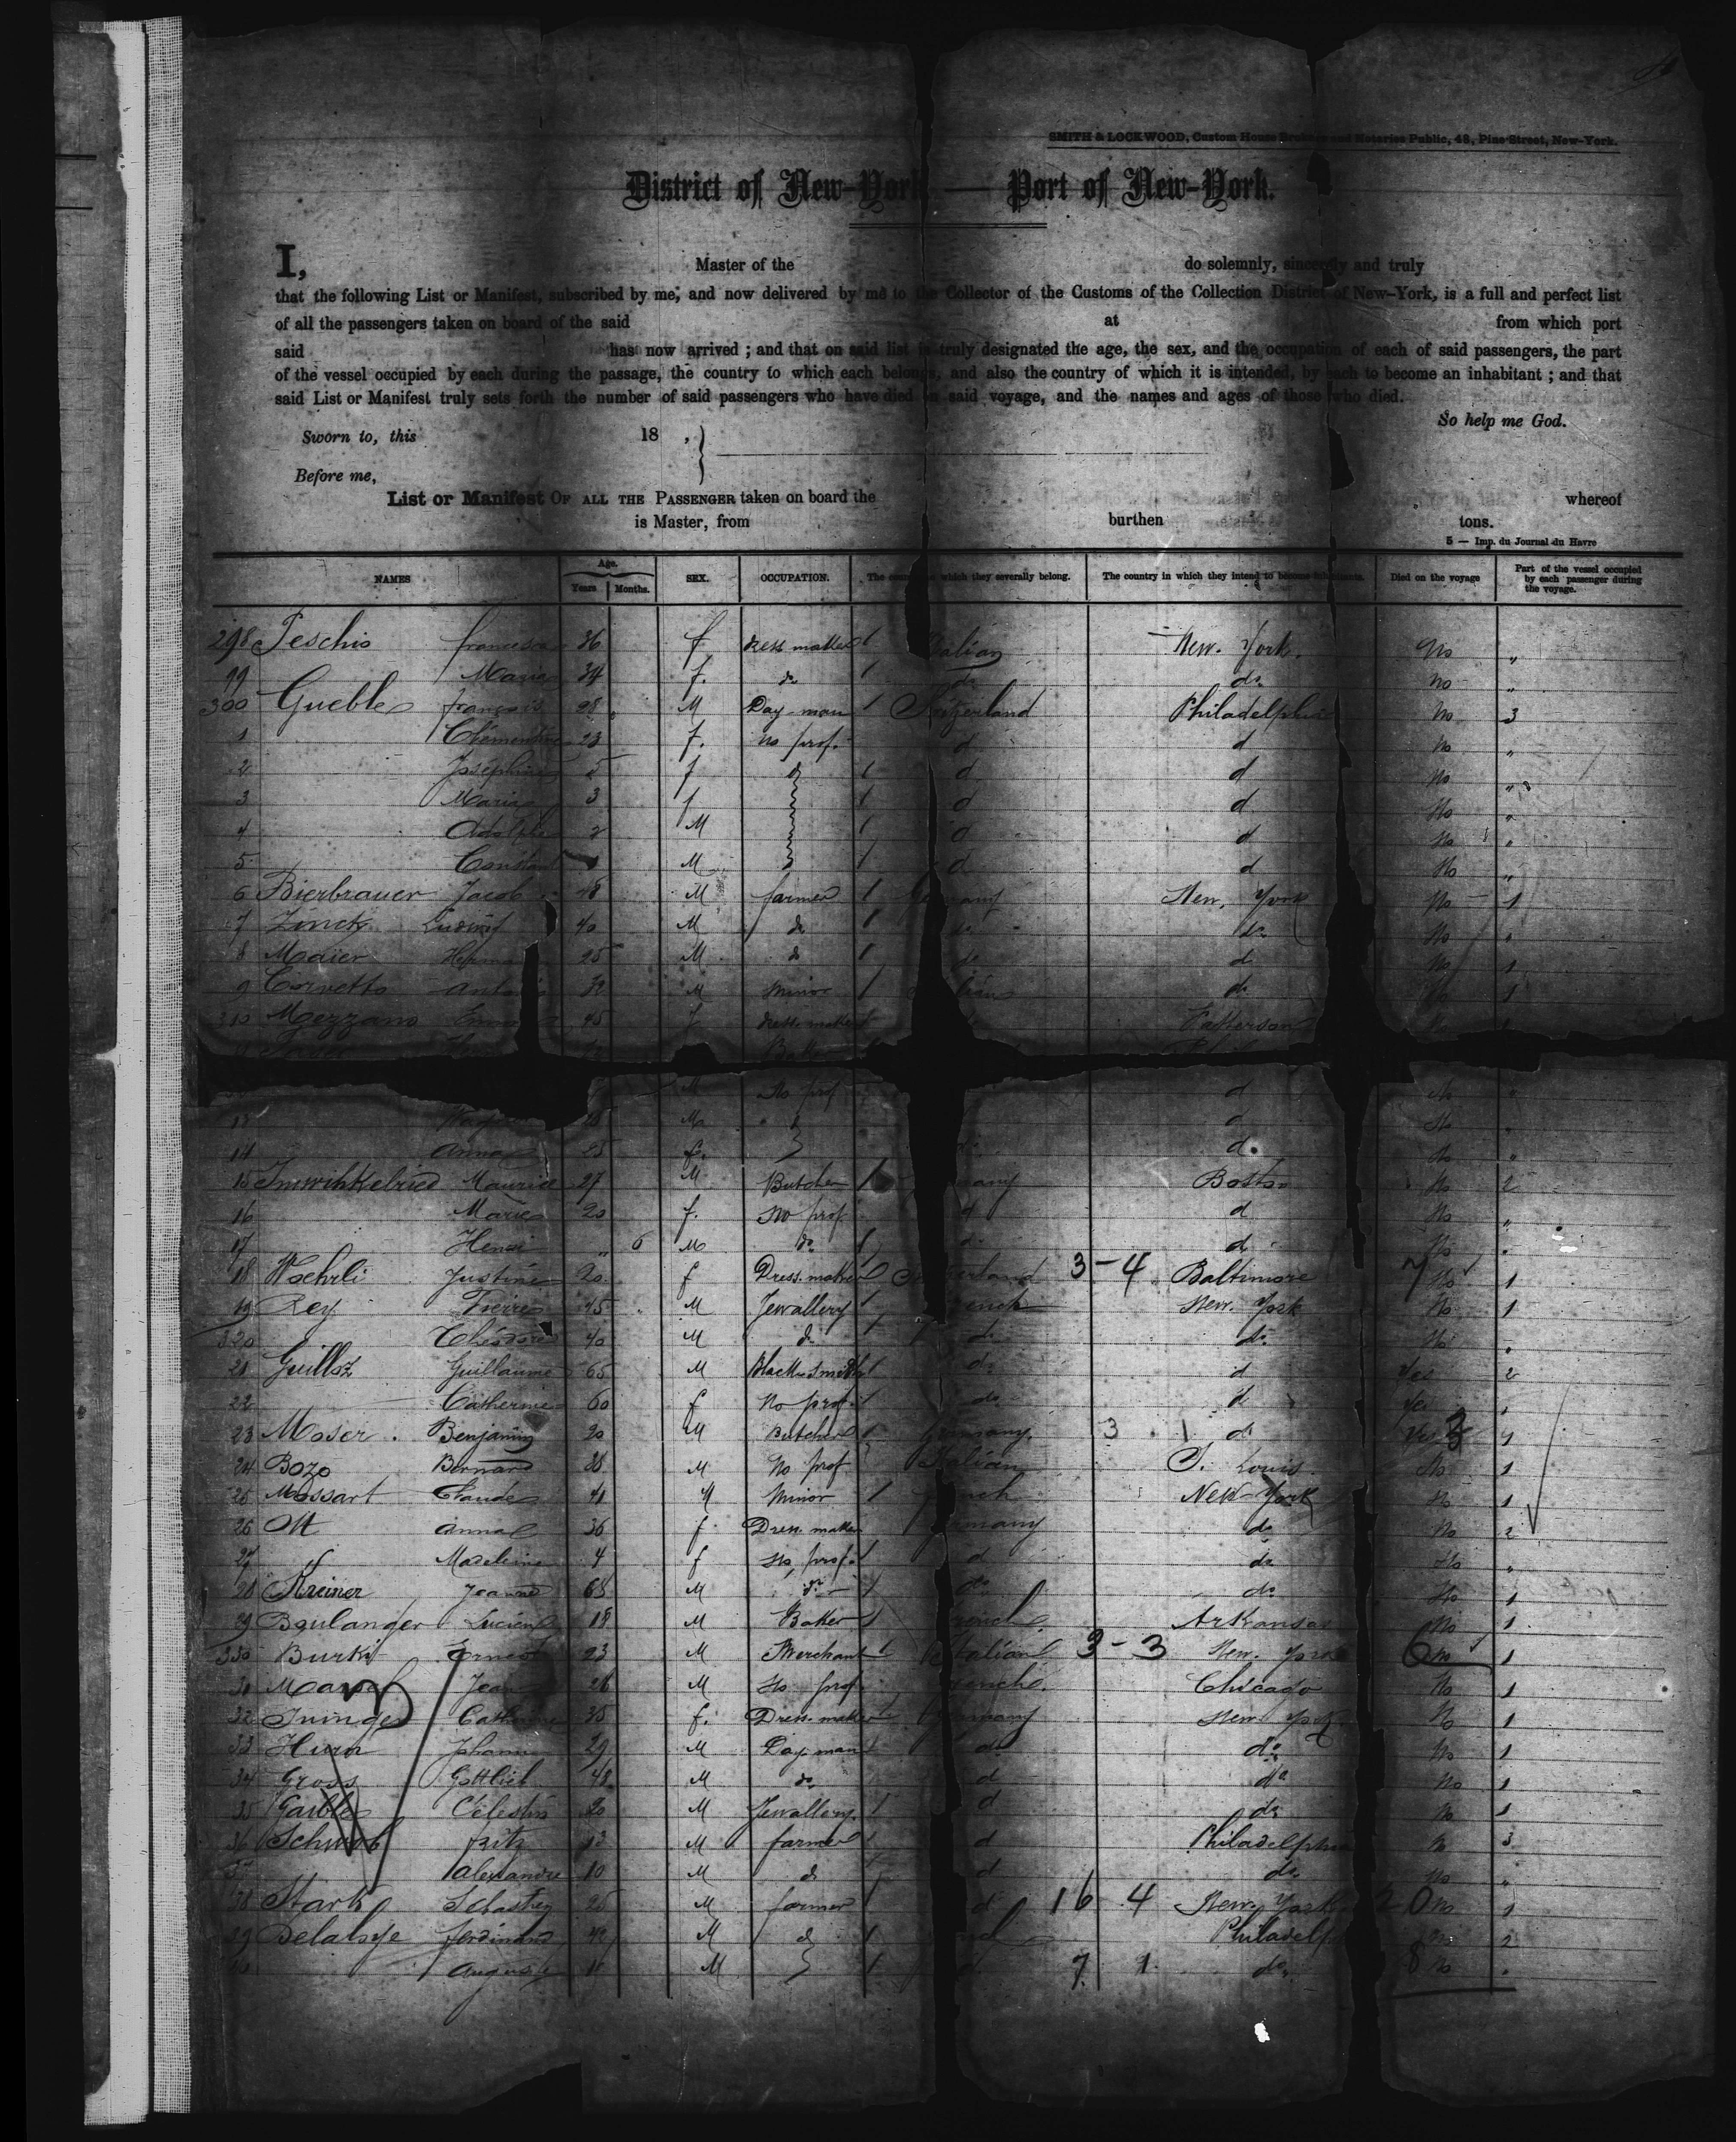 SMITH & LOCKWOOD, Custom House Brokers and Notaries Public, 48, Pine Street, New-York.
District of New-York — Port of New-York.
I, Master of the do solemnly, sincerely and truly
that the following List or Manifest, subscribed by me, and now delivered by me to the Collector of the Customs of the Collection District of New-York, is a full and perfect list
of all the passengers taken on board of the said at from which port
said has now arrived ; and that on said list is truly designated the age, the sex, and the occupation of each of said passengers, the part
of the vessel occupied by each during the passage, the country to which each belongs, and also the country of which it is intended, by each to become an inhabitant ; and that
said List or Manifest truly sets forth the number of said passengers who have died on said voyage, and the names and ages of those who died.
So help me God.
Sworn to, this 18 ,
Before me,
List or Manifest OF ALL THE PASSENGER taken on board the whereof
is Master, from burthen tons.
5 — Imp. du Journal du Havre
NAMES Age. Years Months. SEX. OCCUPATION. The country which they severally belong. The country in which they intend to become inhabitants. Died on the voyage Part of the vessel occupied by each passenger during the voyage.
298 Teschio francesca 36 f dress maker 1 Italian New. York. No "
99 Maria 34 f. do 1 do do No "
300 Gueble françois 28 M Day-man 1 Switzerland Philadelphia No 3
1 Clémentine 23 f. no prof. d d No "
2 Joséphine 5 f d 1 d d No "
3 Maria 3 f 1 d d No "
4 Adolphe 2 M 1 d d No "
5 Constant M 1 d d No "
6 Bierbrauer Jacob 48 M farmer 1 Germany New. York No 1
7 Zinck Ludwig 40 M do 1 do do No "
8 Maier Hermann 25 M do 1 do d No 1
9 Cornetto Antonio 32 M Minor 1 Italian do No 1
310 Mezzano Emma 45 f dress maker Patterson No 1
Baker
M No prof d No "
13 M d No "
14 Anna 25 f. do d. No "
15 Imwinkelried Maurice 27 M Butcher 1 Germany Boston No 2
16 Marie 20 f. No prof d d No "
17 Henri " 6 M do 1 do d No "
18 Woehrli Justine 20 f Dress. maker Switzerland 3-4 Baltimore 7 No 1
19 Rey Pierre 45 M Jewallery 1 french New. York No 1
320 Théodore 40 M do 1 do do No "
21 Guilloz Guillaume 65 M Black-smith 1 do d Yes 2
22 Catherine 60 f No prof. 1 do d Yes "
23 Moser. Benjamin 20 M Butcher 1 Germany. 3 . 1 do Yes 3
24 Bozo Bernard 28 M No prof Italian S. Louis. No 1
25 Mossart Claude 41 M Minor 1 french New-York No 1
26 Ott Anna 36 f Dress. maker Germany do No 2
27 Madeleine 4 f No prof. 1 d do No "
28 Kreiner Jeanne 65 M do 1 do do No 1
29 Boulanger Lucien 18 M Baker 1 french. Arkansas No 1
330 Burki Ernest 23 M Merchant 1 Italian 3-3 New. York 6 No 1
31 Jean 28 M No prof. french. Chicago No 1
32 Catherine 35 f. Dress. maker Germany New. York No 1
33 Hurn Johann 29 M Day-man 1 do do No 1
34 Gross Gottlieb 48 M do d do No 1
35 Gaible Célestin 20 M Jewallery. 1 d do No 1
36 Schwob fritz 13 M farmer 1 d Philadelphia No 3
37 Alexandre 10 M do 1 d do No "
38 Stark Sébastien 26 M farmer 1 d 16 4 New. York 20 No 1
39 Delalye ferdinand 42 M d 1 Philadelphia No 2
40 Auguste M 1 d. 7. 1. do. 8 No "